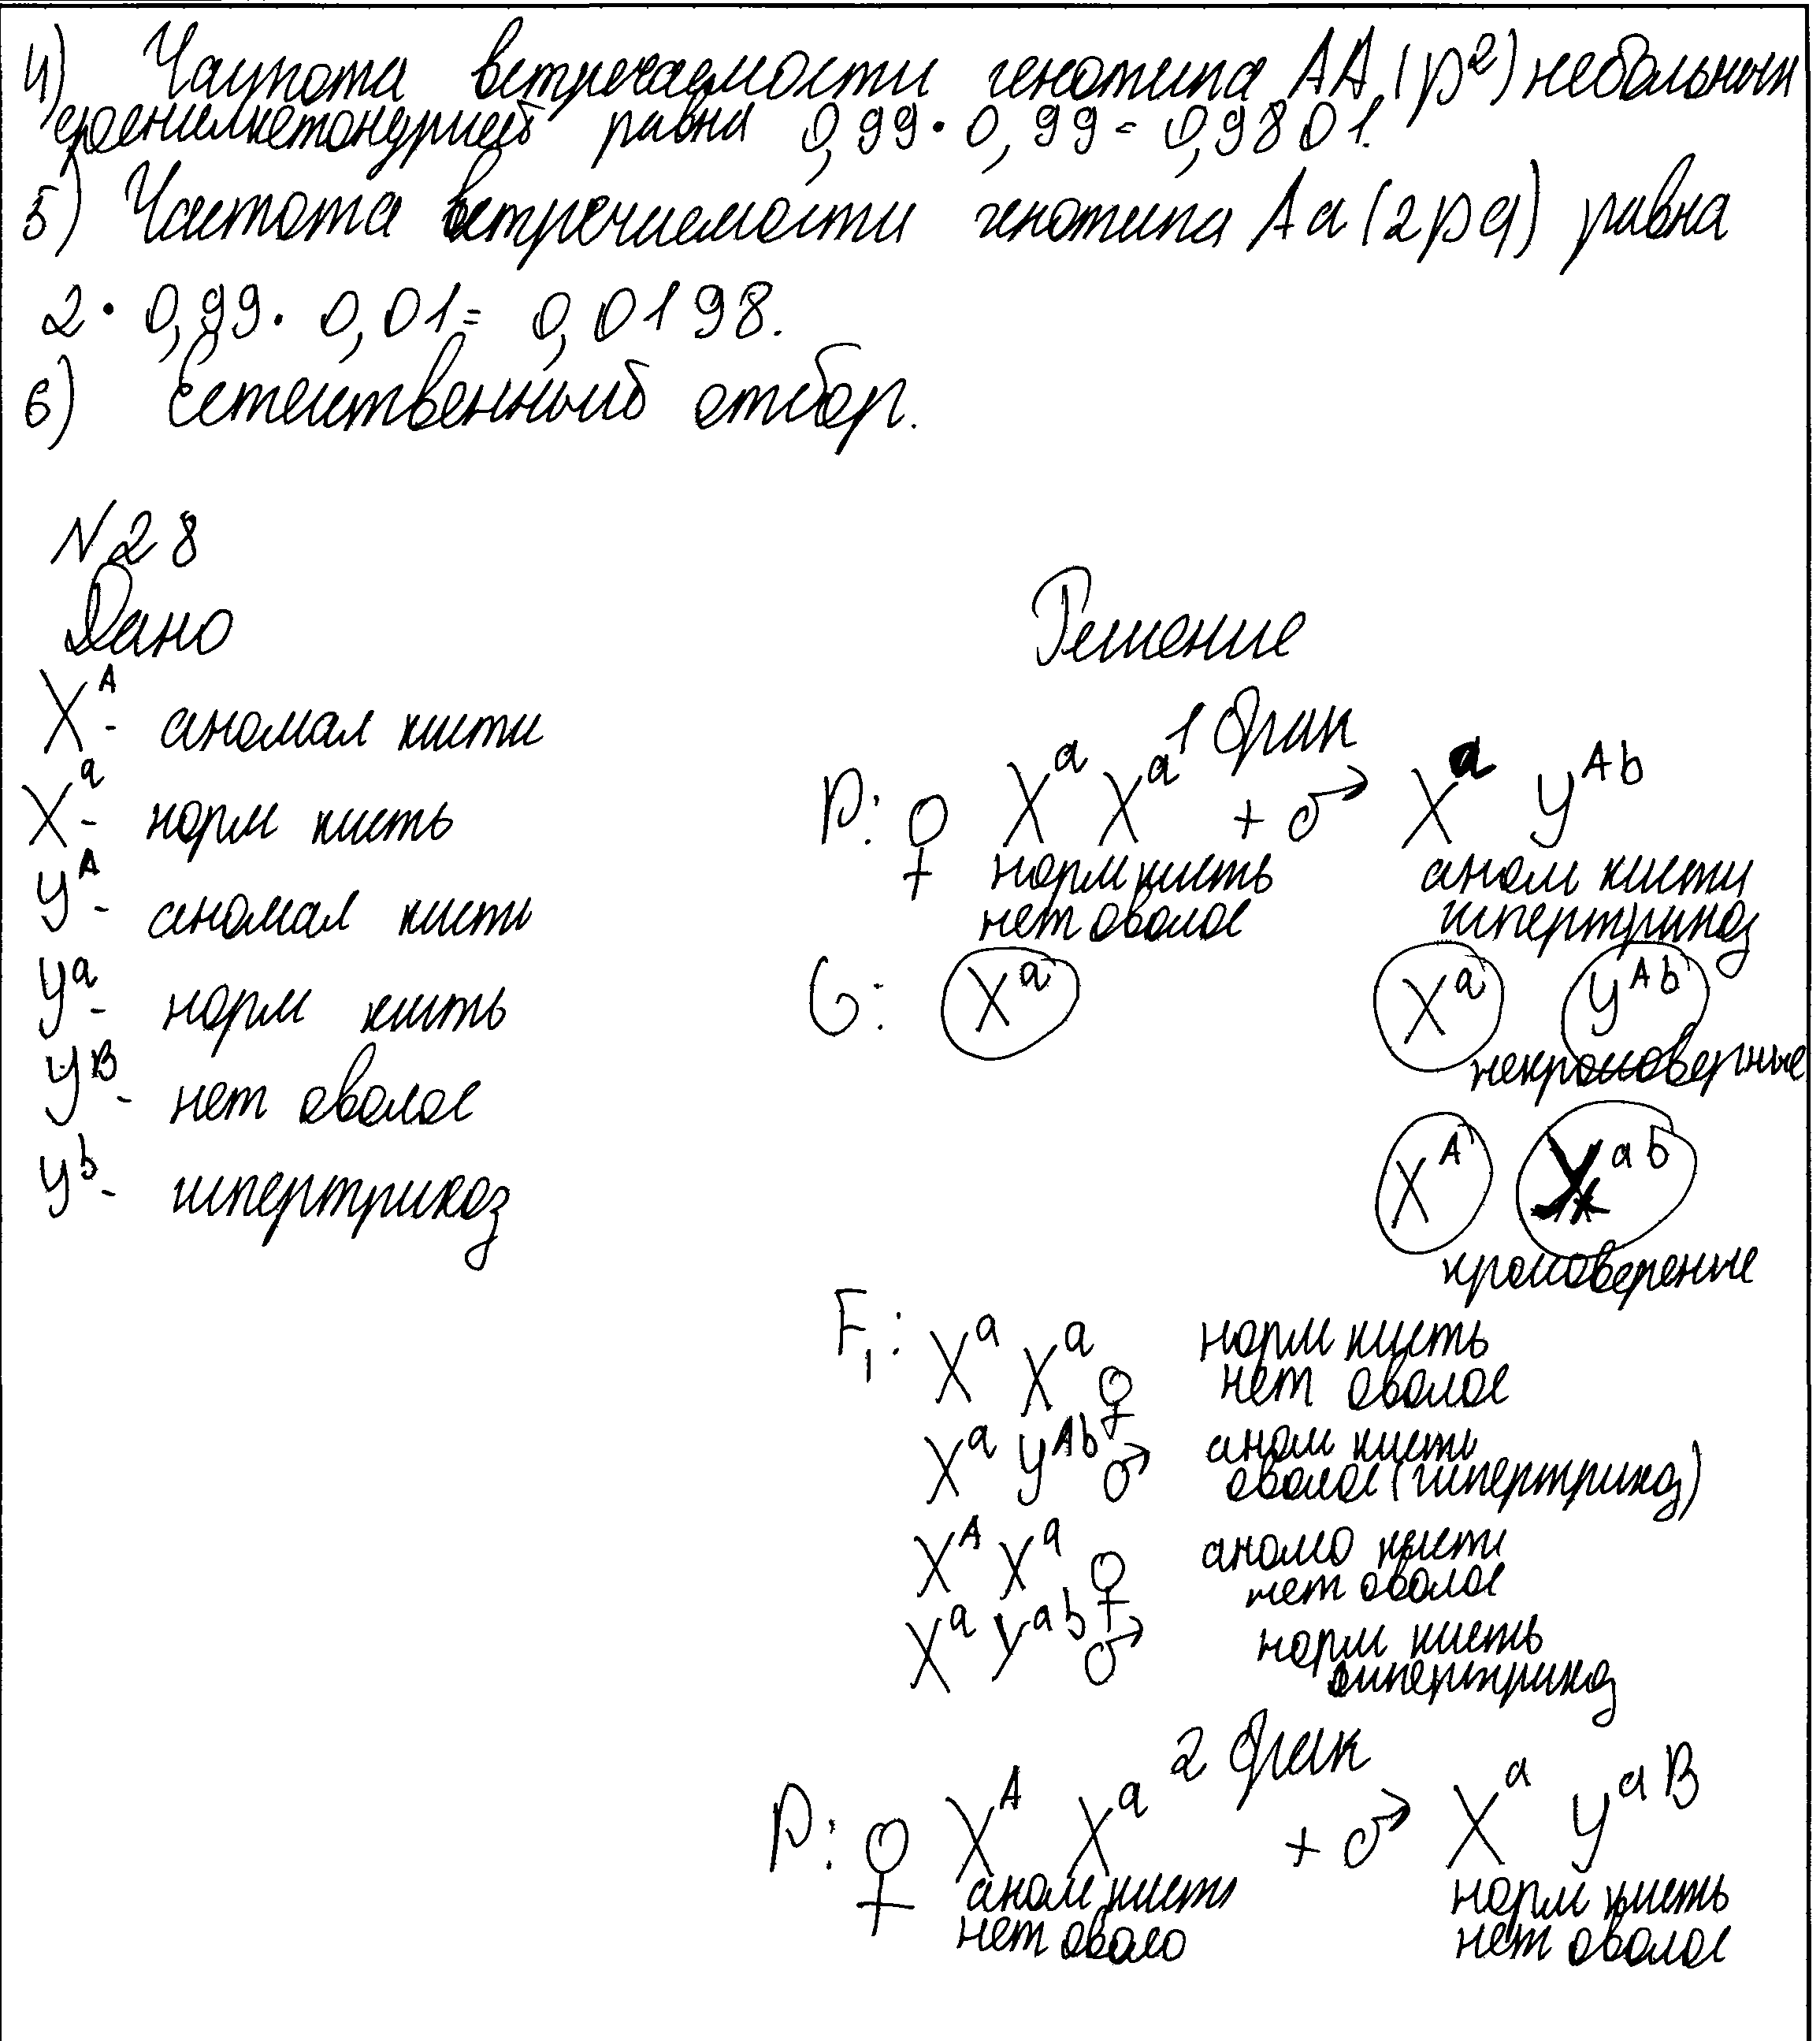 4) Частота встречаемости генотипа АА (p²) небольных
фенилкетонурией равна 0,99 · 0,99 = 0,9801.
5) Частота встречаемости генотипа Аа (2pq) равна
2 · 0,99 · 0,01 = 0,0198.
6) Естественный отбор.
N28
Дано
Решение
X^A - аномал кисти
X^a - норм кисть
Y^A - аномал кисти
Y^a - норм кисть
Y^B - нет оволос
Y^b - гипертрихоз
1 брак
P: ♀ X^a X^a + ♂ X^a Y^Ab
норм кисть аном кисти
нет оволос гипертрихоз
G: X^a X^a Y^Ab
некроссоверные
X^A Y^ab
кроссоверные
F₁: X^a X^a ♀ норм кисть
нет оволос
X^a Y^Ab ♂ аном кисти
оволос (гипертрихоз)
X^A X^a ♀ аномо кисти
нет оволос
X^a Y^ab ♂ норм кисть
гипертрихоз
2 брак
P: ♀ X^A X^a + ♂ X^a Y^aB
аном кисти норм кисть
нет оволо нет оволос